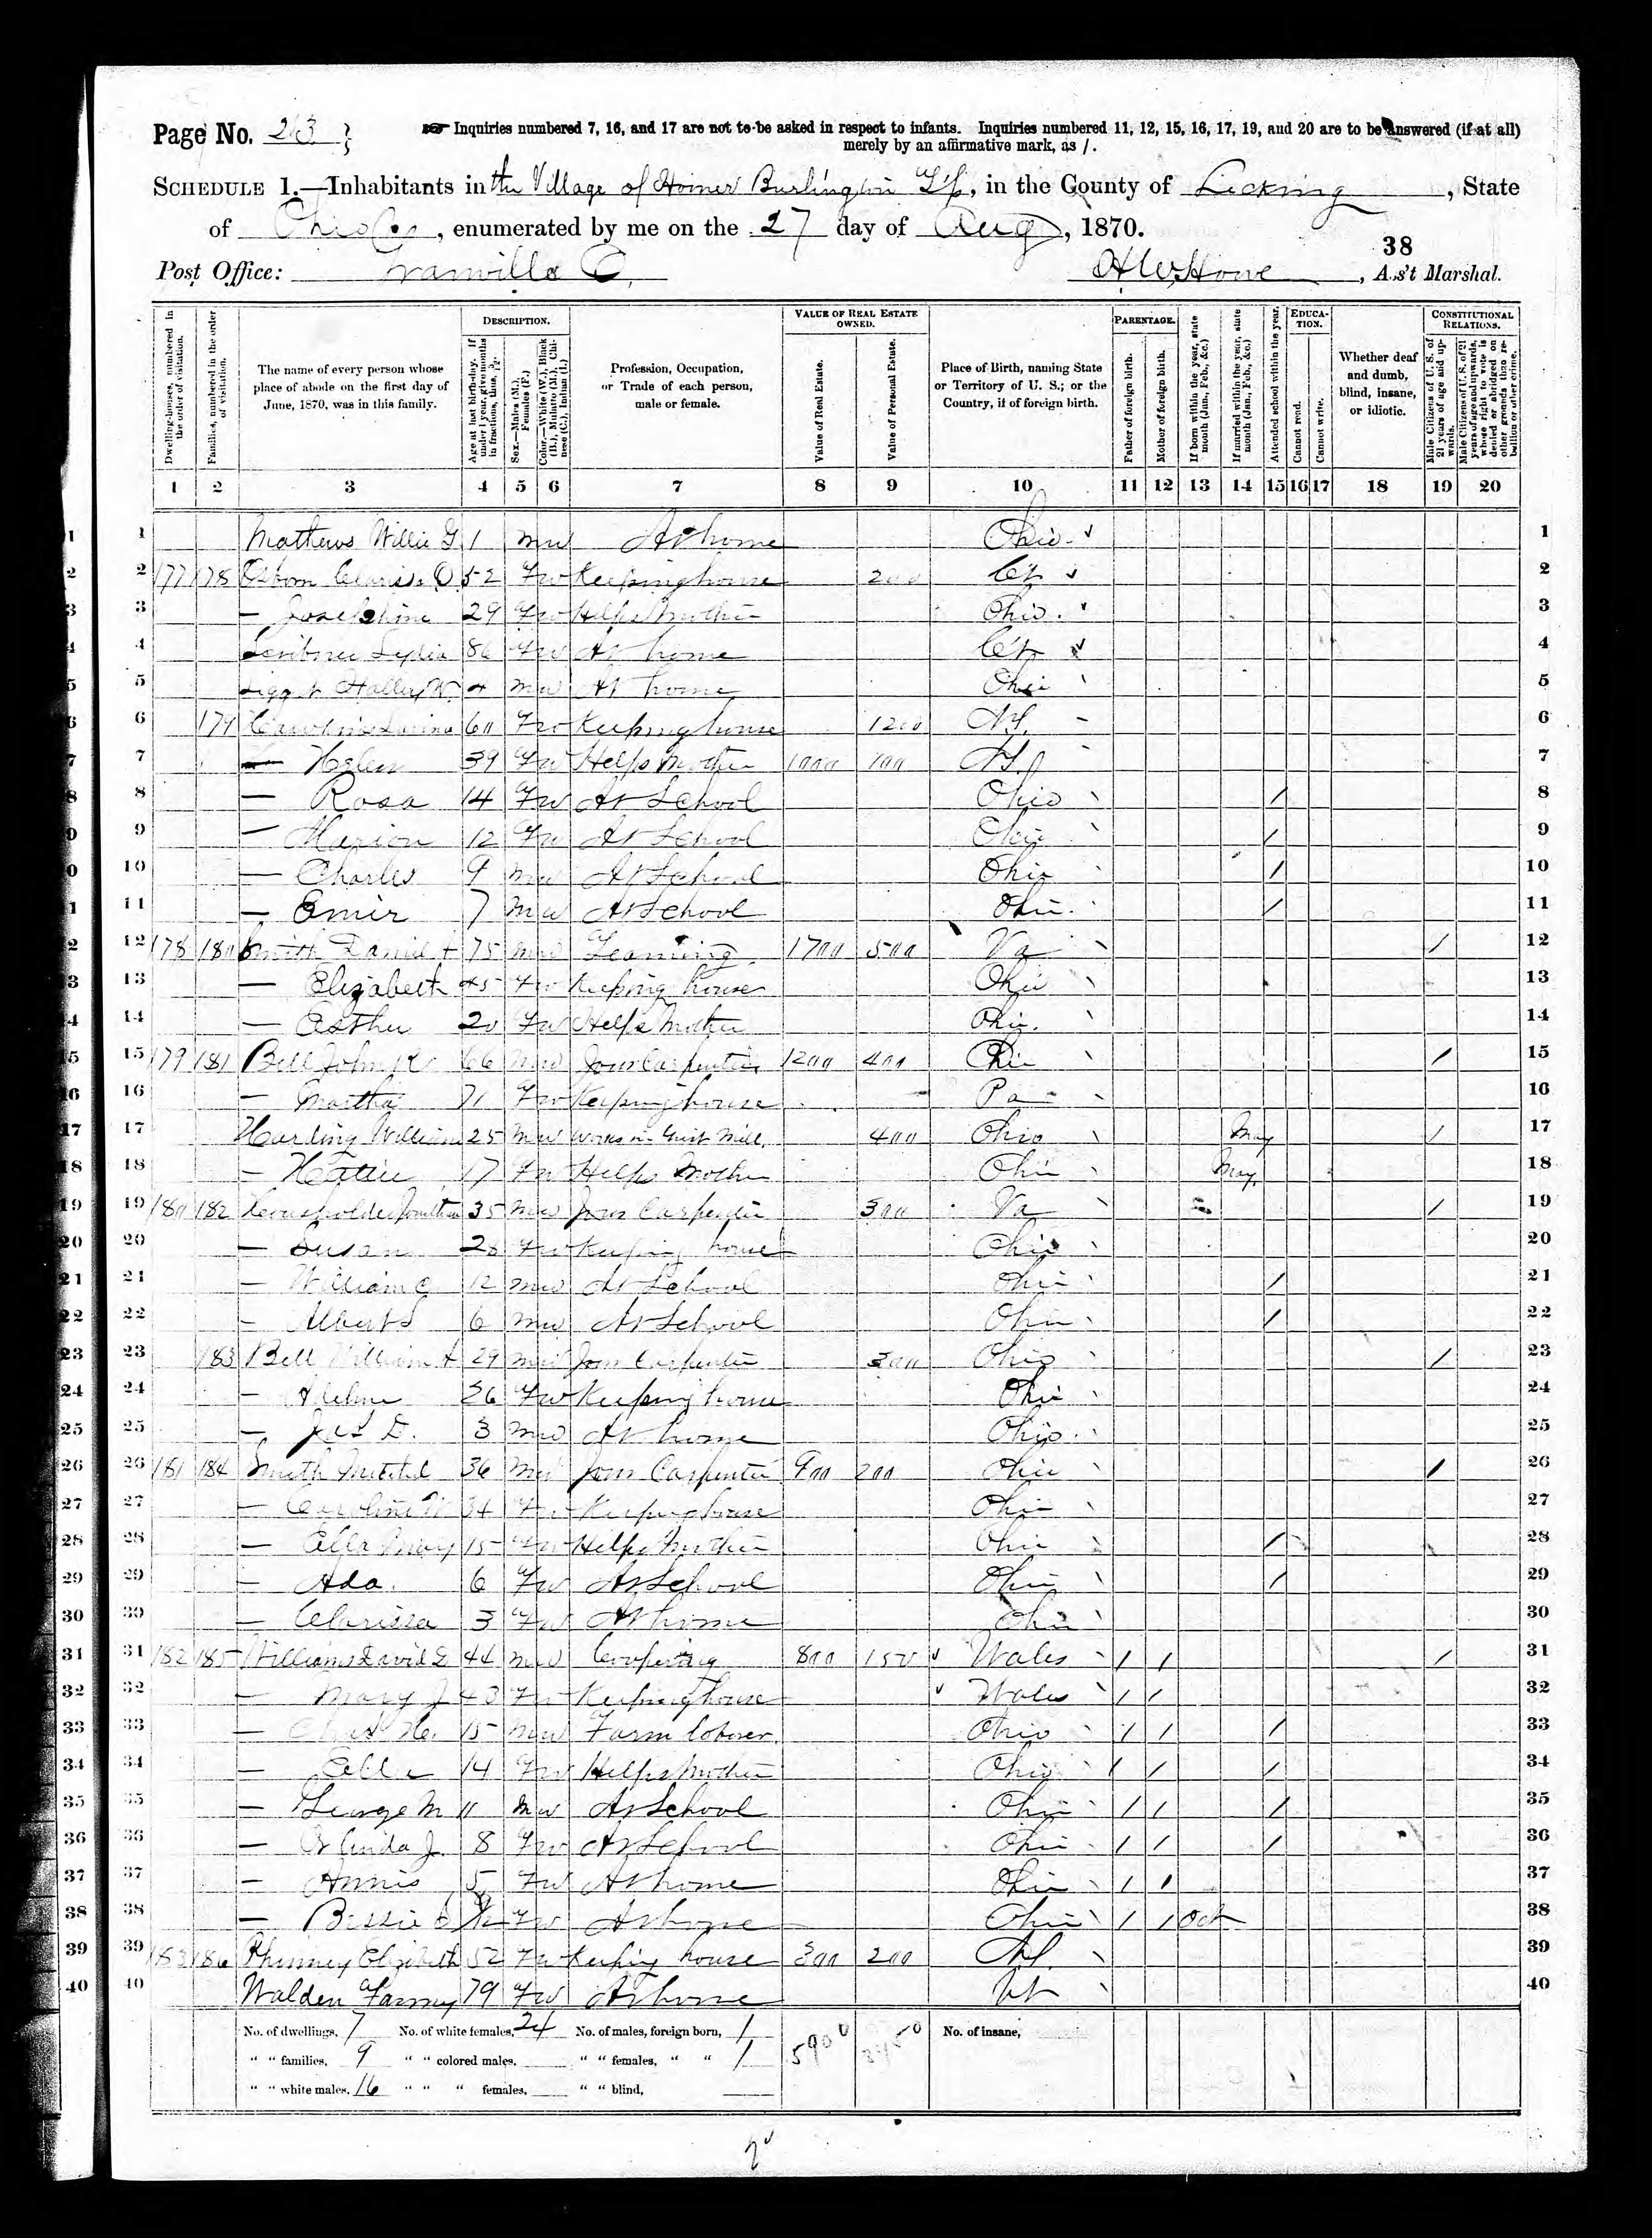 Page No. 23
Inquiries numbered 7, 16, and 17 are not to be asked in respect to infants. Inquiries numbered 11, 12, 15, 16, 17, 19, and 20 are to be answered (if at all)
merely by an affirmative mark, as /.
SCHEDULE 1.—Inhabitants in the Village of Homer Burlington Tp, in the County of Licking, State
of Ohio, enumerated by me on the 27 day of Aug, 1870.
38
Post Office: Granville O. H W Howe, Ass't Marshal.
Dwelling-houses, numbered in the order of visitation.
Families, numbered in the order of visitation.
The name of every person whose place of abode on the first day of June, 1870, was in this family.
DESCRIPTION.
Age at last birth-day. If under 1 year, give months in fractions, thus, 3/12
Sex.—Males (M.), Females (F.)
Color.—White (W.), Black (B.), Mulatto (M.), Chinese (C.), Indian (I.)
Profession, Occupation, or Trade of each person, male or female.
VALUE OF REAL ESTATE OWNED.
Value of Real Estate.
Value of Personal Estate.
Place of Birth, naming State or Territory of U. S.; or the Country, if of foreign birth.
PARENTAGE.
Father of foreign birth.
Mother of foreign birth.
If born within the year, state month (Jan., Feb., &c.)
If married within the year, state month (Jan., Feb., &c.)
Attended school within the year.
EDUCATION.
Cannot read.
Cannot write.
Whether deaf and dumb, blind, insane, or idiotic.
CONSTITUTIONAL RELATIONS.
Male Citizens of U. S. of 21 years of age and upwards.
Male Citizens of U. S. of 21 years of age and upwards, whose right to vote is denied or abridged on other grounds than rebellion or other crime.
1 2 3 4 5 6 7 8 9 10 11 12 13 14 15 16 17 18 19 20
1 Mathews Willie G 1 m w At home Ohio 1
2 177 178 Osborn O 52 F w Keeping house 200 Ct 2
3 — Josephine 29 F w Helps Mother Ohio 3
4 Scribner Lydia 86 F w At home Ct 4
5 4 m w At home Ohio 5
6 179 60 F w Keeping house 1200 NY 6
7 — Helen 39 F w Helps Mother 1000 100 NY 7
8 — Rosa 14 F w At School Ohio / 8
9 — Marion 12 F w At School Ohio / 9
10 — Charles 9 m w At School Ohio / 10
11 — Emir 7 m w At School Ohio / 11
12 178 180 Smith Daniel 75 m w Teaming 1700 500 Va / 12
13 — Elizabeth 45 F w Keeping house Ohio 13
14 — Esther 20 F w Helps Mother Ohio 14
15 179 181 Bell John 66 m w Jour Carpenter 1200 400 Ohio / 15
16 — Martha 71 F w Keeping house Pa 16
17 Harling William 25 m w Works in Grist Mill 400 Ohio May / 17
18 — Hattie 17 F w Helps Mother Ohio May 18
19 180 182 35 m w Jour Carpenter 300 Va / 19
20 — Susan 28 F w Keeping house Ohio 20
21 — William C 12 m w At School Ohio / 21
22 — Albert S 6 m w At School Ohio / 22
23 183 Bell William 29 m w Jour Carpenter 300 Ohio / 23
24 — 26 F w Keeping house Ohio 24
25 — Jas D. 3 m w At home Ohio 25
26 181 184 Smith 36 m w Jour Carpenter 900 200 Ohio / 26
27 — Caroline 34 F w Keeping house Ohio 27
28 — Ella May 15 F w Helps Mother Ohio / 28
29 — Ada 6 F w At School Ohio / 29
30 — Clarissa 3 F w At home Ohio 30
31 182 185 Williams David E 44 m w Coopering 800 150 Wales / / / 31
32 — Mary J 43 F w Keeping house Wales / / 32
33 — 15 m w Farm laborer Ohio / / / 33
34 — 14 F w Helps Mother Ohio / / / 34
35 — George M 11 m w At School Ohio / / / 35
36 — J. 8 F w At School Ohio / / / 36
37 — Annis 5 F w At home Ohio / / 37
38 — Bessie F w At home Ohio / / Oct 38
39 183 186 Phinney Elizabeth 52 F w Keeping house 300 200 NY 39
40 Walden Fanny 79 F w At home Vt 40
No. of dwellings, 7 No. of white females, 24 No. of males, foreign born, 1 5900 No. of insane,
" " families, 9 " " colored males, " " females, " " 1
" " white males, 16 " " " females, " " blind,